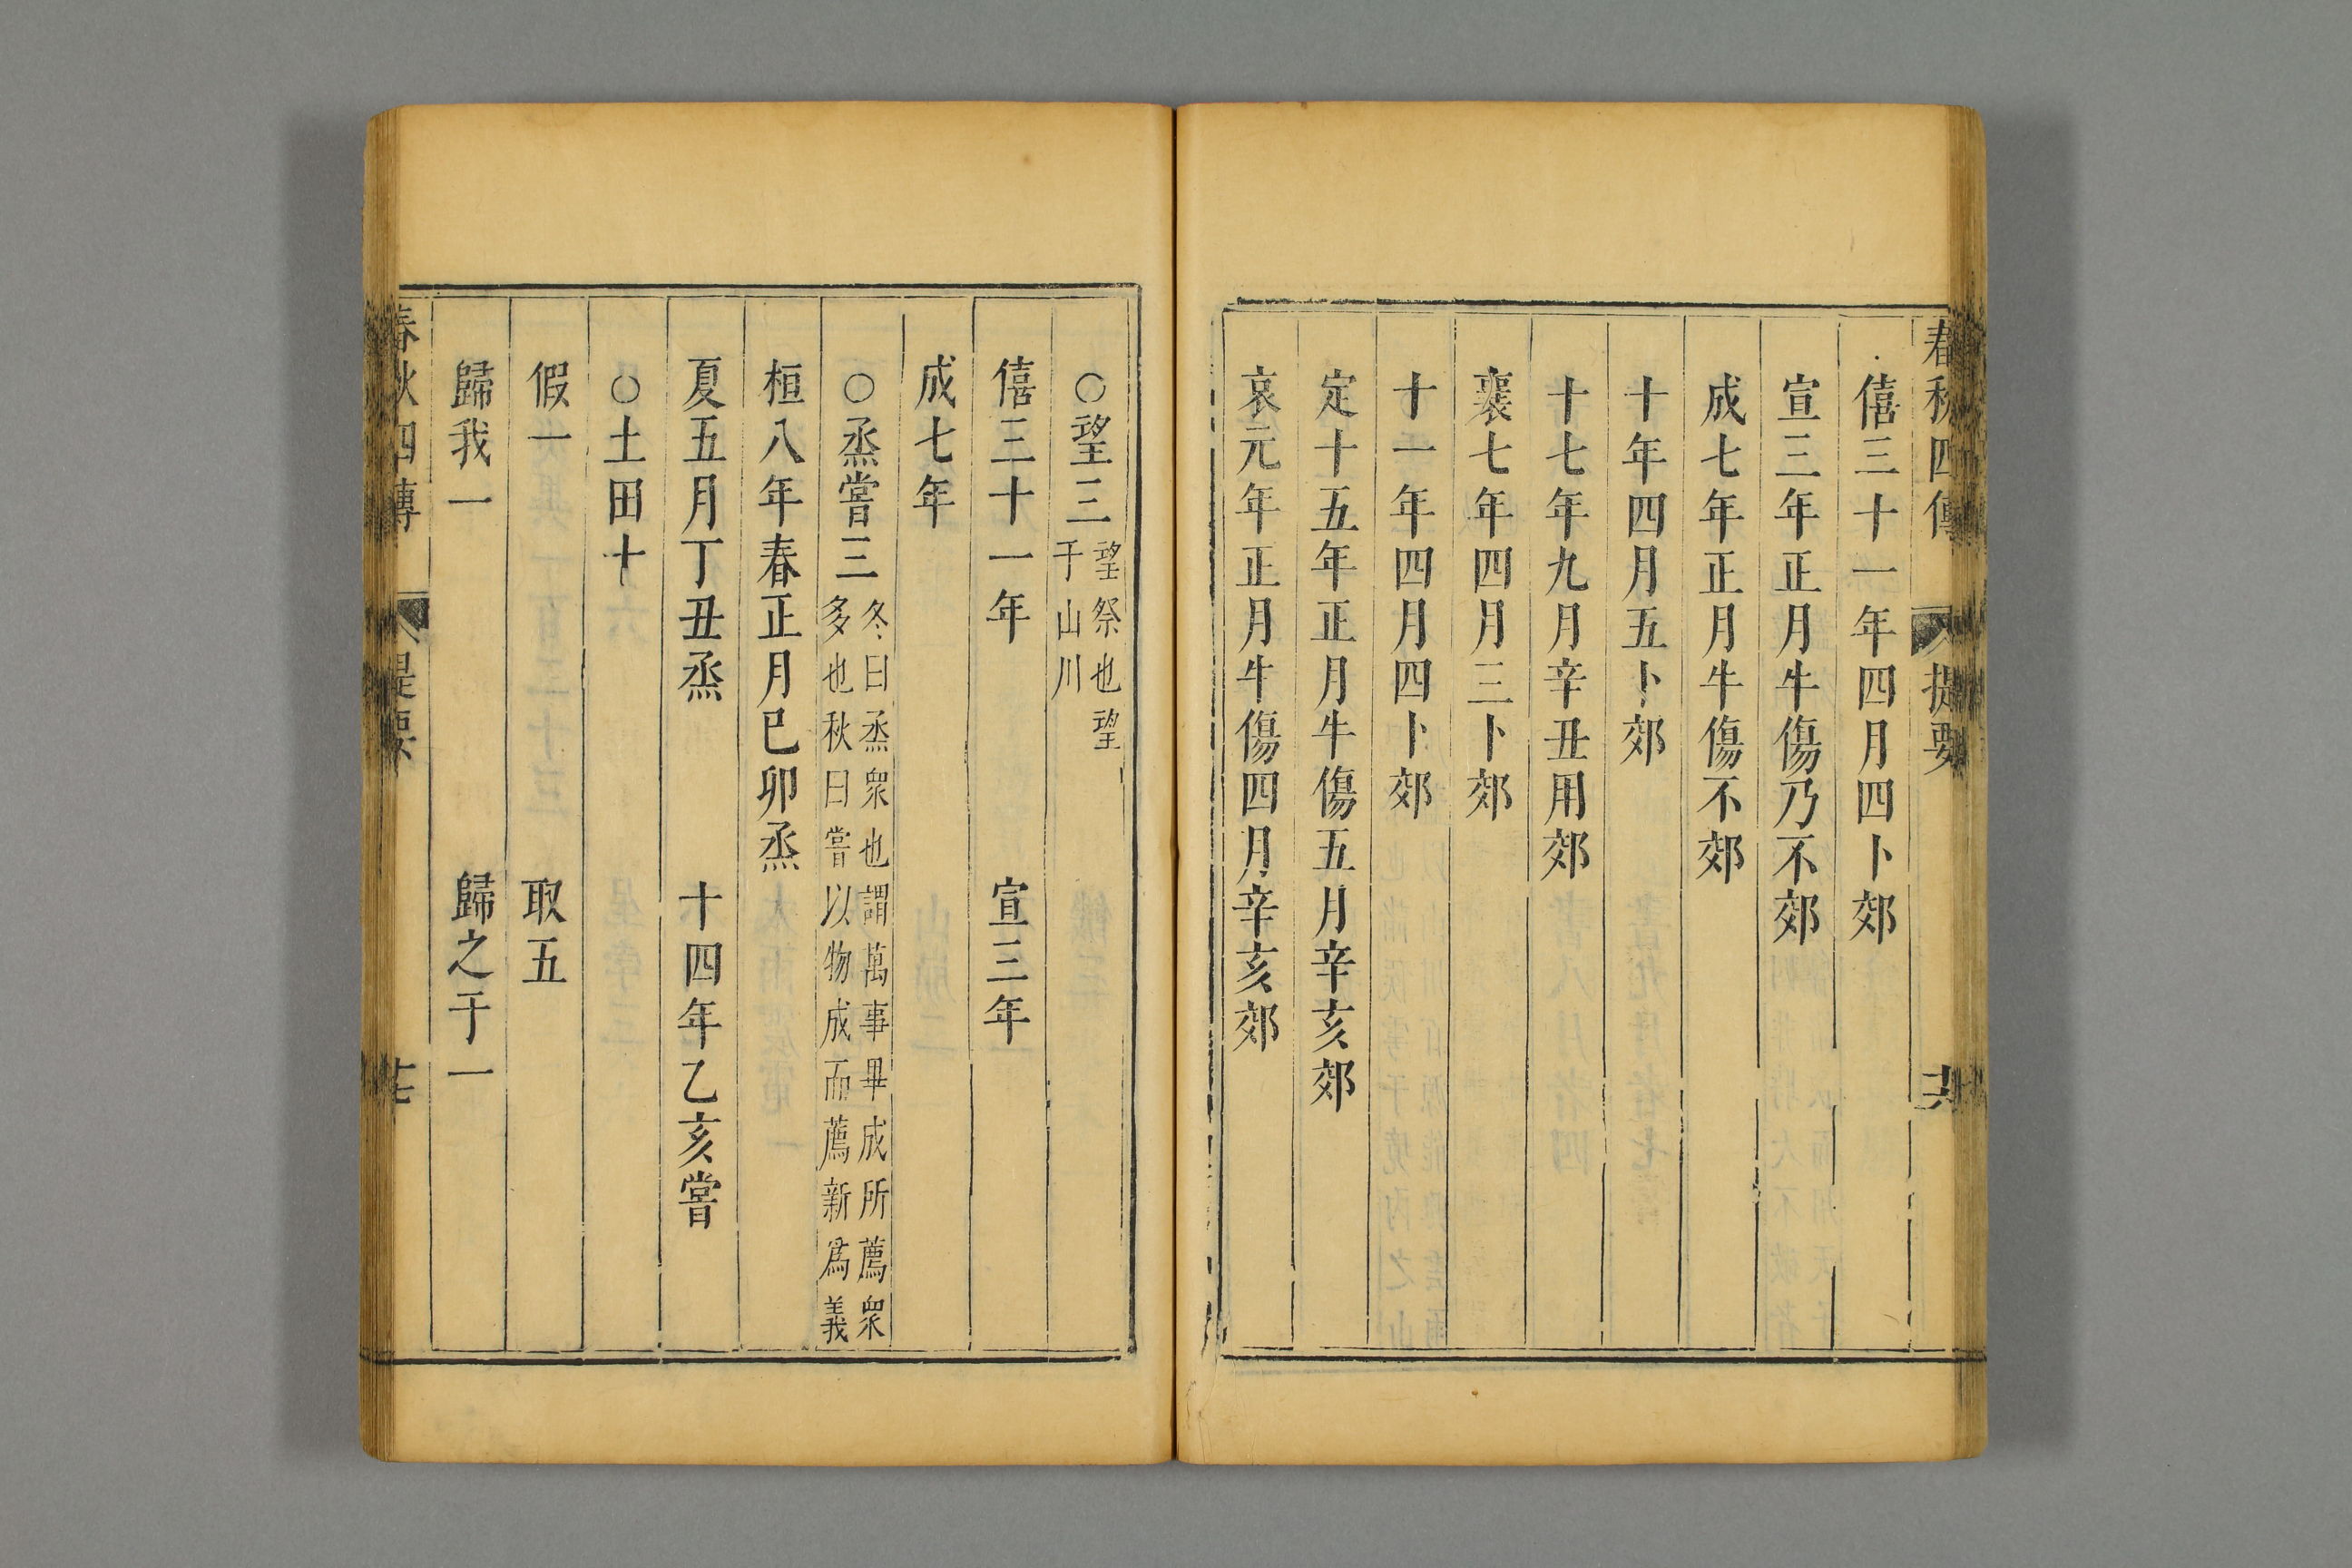 春秋四傳 提要 十六
僖三十一年四月四卜郊
宣三年正月牛傷乃不郊
成七年正月牛傷不郊
十年四月五卜郊
十七年九月辛丑用郊
襄七年四月三卜郊
十一年四月四卜郊
定十五年正月牛傷五月辛亥郊
哀元年正月牛傷四月辛亥郊
○望三 望祭也望
于山川
僖三十一年 宣三年
成七年
○烝嘗三 冬曰烝衆也謂萬事畢成所薦衆
多也秋曰嘗以物成而薦新爲義
桓八年春正月巳卯烝
夏五月丁丑烝 十四年乙亥嘗
○土田十
假一 取五
歸我一 歸之于一
春秋四傳 提要 十七